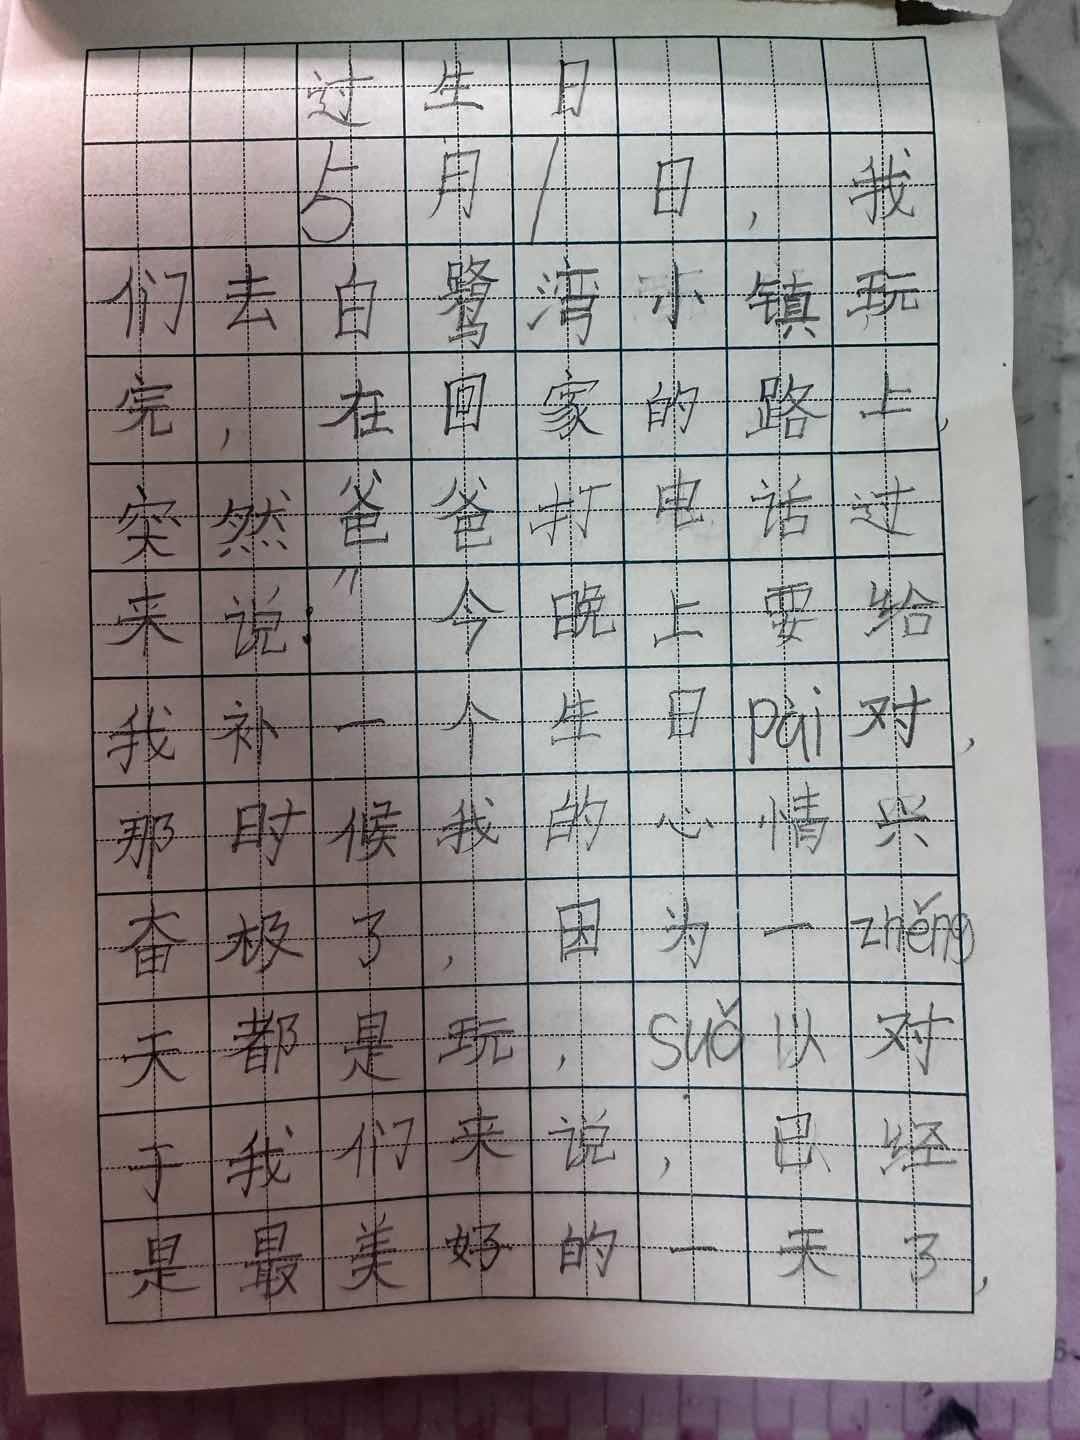 过生日
5月1日，我
们去白鹭湾小镇玩
完，在回家的路上，
突然爸爸打电话过
来说："今晚上要给
我补一个生日pài对，
那时候我的心情兴
奋极了，因为一zhěng
天都是玩，suǒ以对
于我们来说，已经
是最美好的一天了，